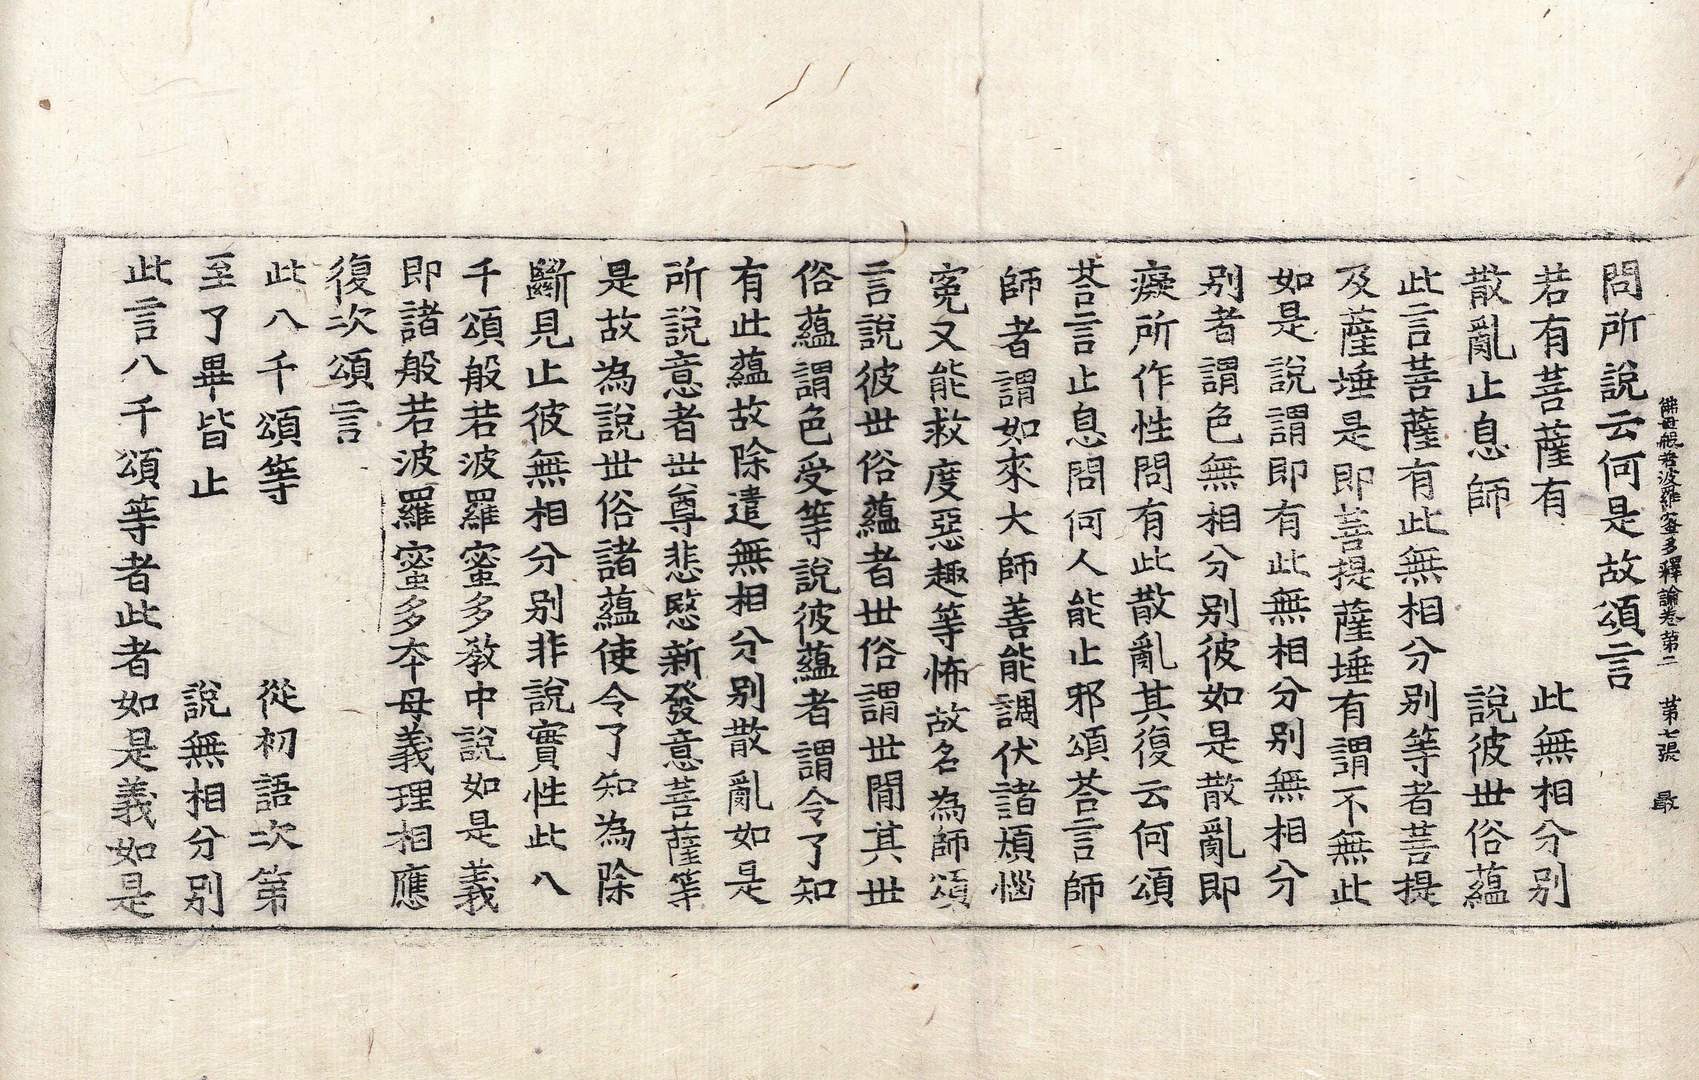 佛母般若波羅蜜多釋論卷第二 第七張 最
問所說云何是故頌言
若有菩薩有 此無相分別
散亂止息師 說彼世俗蘊
此言菩薩有此無相分別等者菩提
及薩埵是即菩提薩埵有謂不無此
如是說謂即有此無相分別無相分
別者謂色無相分別彼如是散亂即
癡所作性問有此散亂其復云何頌
荅言止息問何人能止邪頌荅言師
師者謂如來大師善能調伏諸煩惱
寃又能救度惡趣等怖故名為師頌
言說彼世俗蘊者世俗謂世間其世
俗蘊謂色受等說彼蘊者謂令了知
有此蘊故除遣無相分別散亂如是
所說意者世尊悲愍新發意菩薩等
是故為說世俗諸蘊使令了知為除
斷見止彼無相分別非說實性此八
千頌般若波羅蜜多教中說如是義
即諸般若波羅蜜多夲母義理相應
復次頌言
此八千頌等 從初語次第
至了畢皆止 說無相分別
此言八千頌等者此者如是義如是